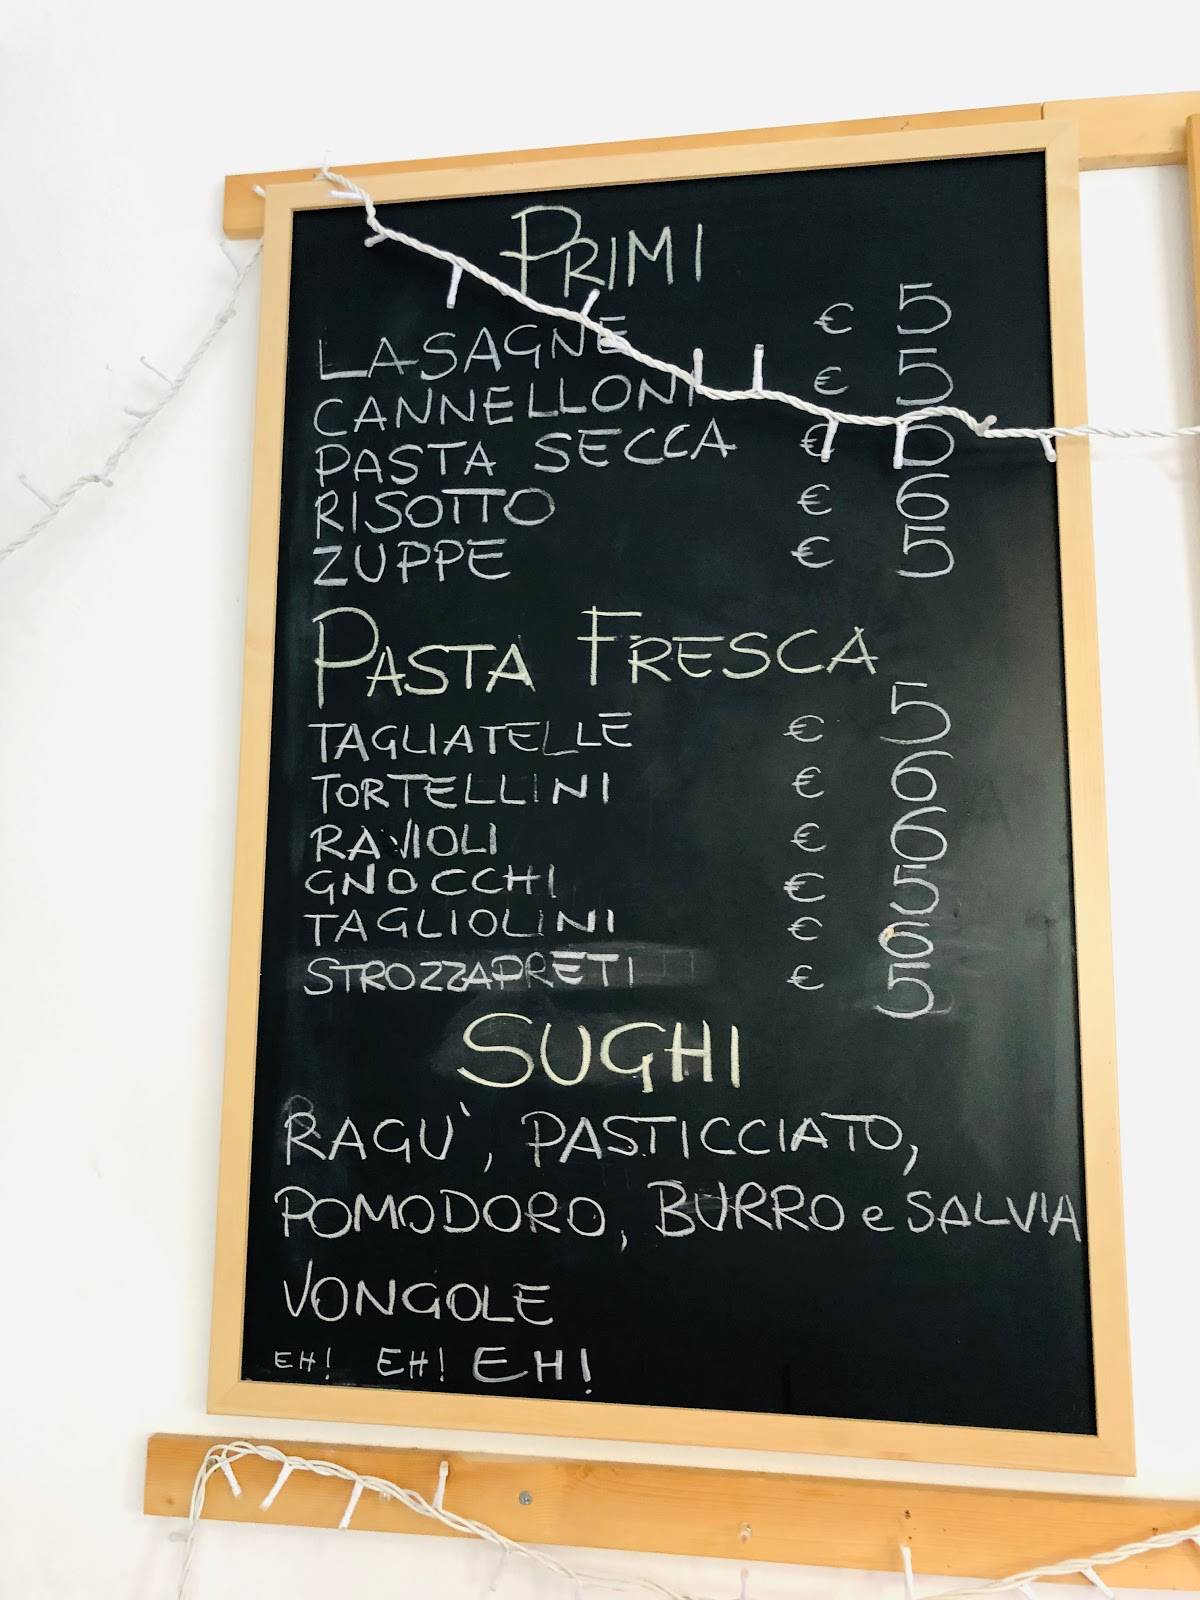 PRIMI
LASAGNE € 5
CANNELLONI € 5
PASTA SECCA €
RISOTTO € 6
ZUPPE € 5
PASTA FRESCA
TAGLIATELLE € 5
TORTELLINI € 6
RAVIOLI € 6
GNOCCHI € 5
TAGLIOLINI € 6
STROZZAPRETI € 5
SUGHI
RAGU', PASTICCIATO,
POMODORO, BURRO e SALVIA
VONGOLE
EH! EH! EH!